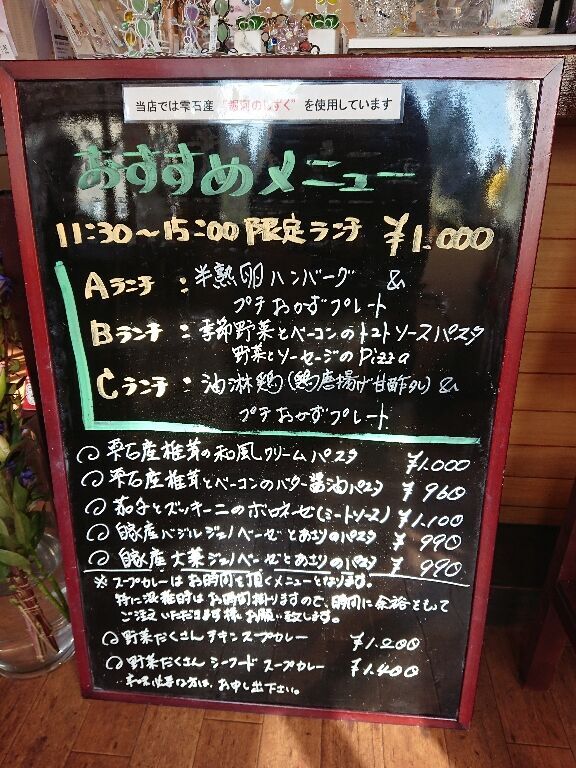 当店では雫石産 "銀河のしずく" を使用しています
おすすめメニュー
11:30〜15:00 限定ランチ ¥1.000
Aランチ : 半熟卵ハンバーグ &
プチおかずプレート
Bランチ : 季節野菜とベーコンのトマトソースパスタ
野菜とソーセージのPizza
Cランチ : 油淋鶏(鶏唐揚げ甘酢タレ) &
プチおかずプレート
雫石産椎茸の和風クリームパスタ ¥1.000
雫石産椎茸とベーコンのバター醤油パスタ ¥960
茄子とズッキーニのボロネーゼ(ミートソース) ¥1.100
自家産バジルジェノベーゼとあさりのパスタ ¥990
自家産大葉ジェノベーゼとあさりのパスタ ¥990
※スープカレーはお時間を頂くメニューとなります。
特に混雑時はお時間掛りますので、時間に余裕をもって
ご注文いただきます様、お願い致します。
野菜たくさんチキンスープカレー ¥1.200
野菜たくさんシーフードスープカレー ¥1.400
な方は、お申し出下さい。